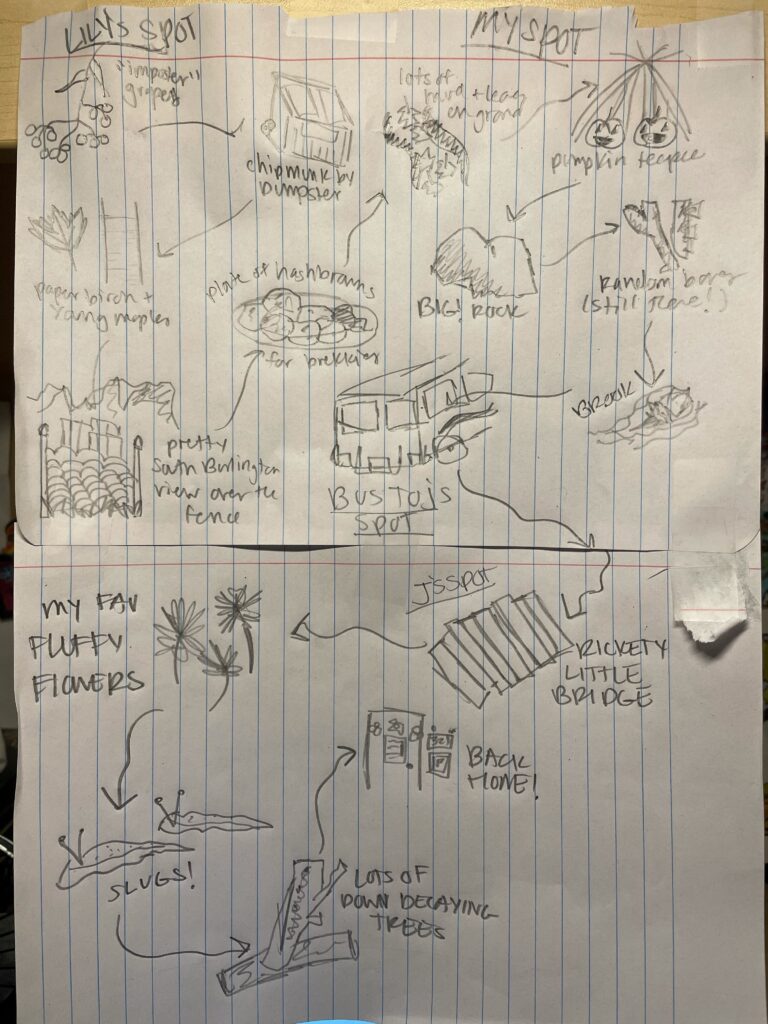 LILY'S SPOT
"imposter"
grapes
chipmunk by
Dumpster
paper birch +
young maples
pretty
South Burlington
view over the
fence
plate of hashbrowns
for brekkie
MY SPOT
lots of
+ leaves
on ground
pumpkin teepee
BIG! ROCK
Random
(still there!)
BROOK
BUS TO J'S
SPOT
J'S SPOT
RICKETY
LITTLE
BRIDGE
MY FAV
FLUFFY
FLOWERS
SLUGS!
LOTS OF
DOWN DECAYING
TREES
BACK
HOME!